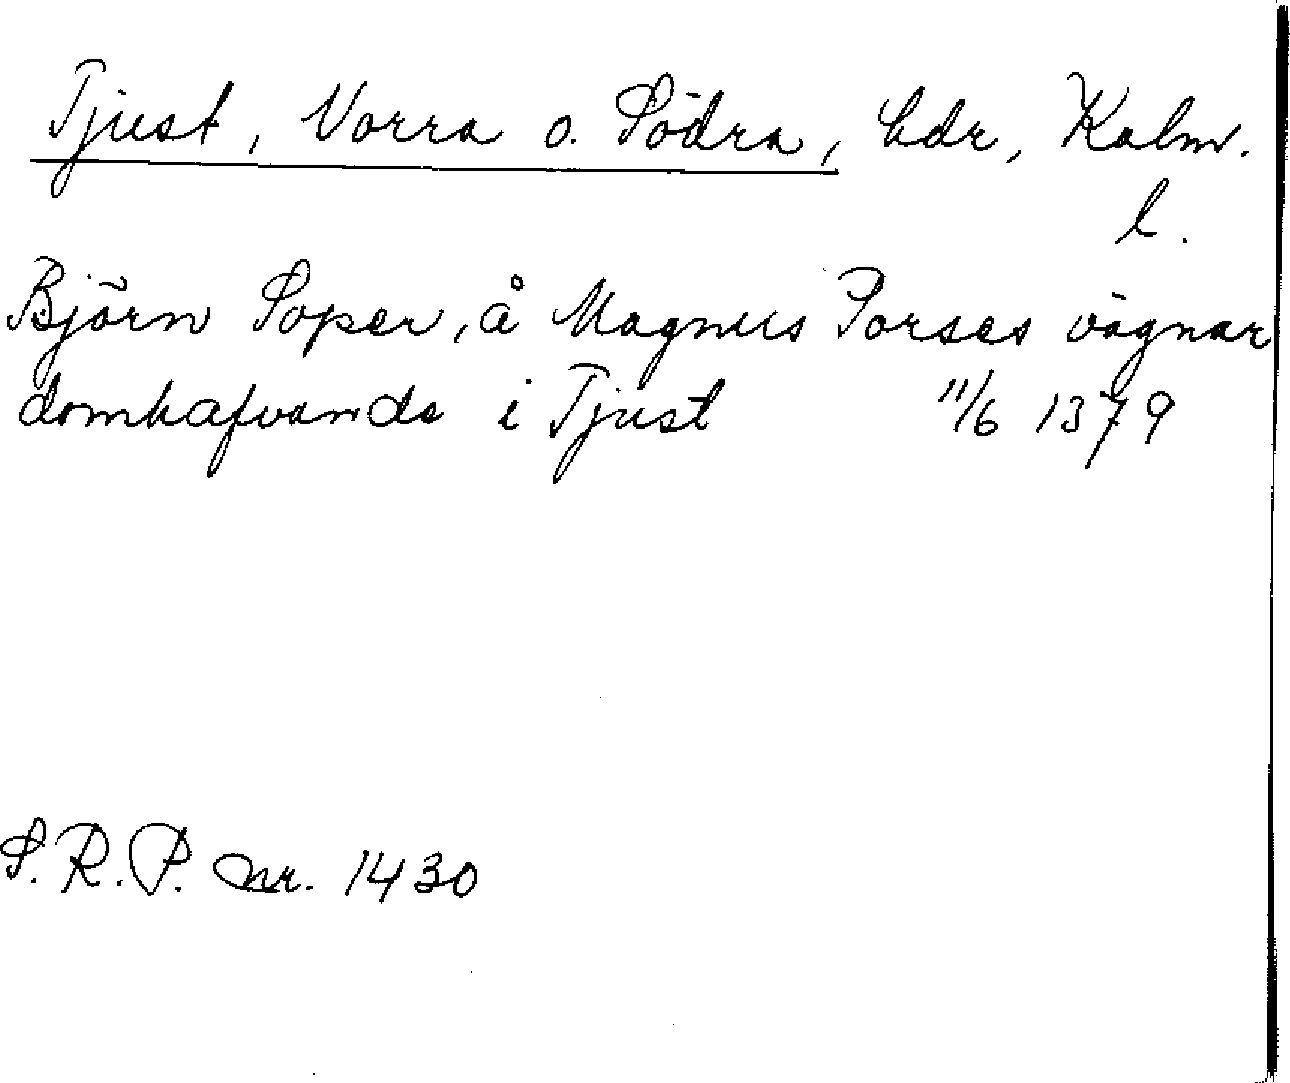 Tjust, Norra o. Södra, hdr, Kalm.
l.
Björn Soper, å Magnus Porses vägnar
domhafvande i Tjust 11/6 1379
S.R.P. nr. 1430